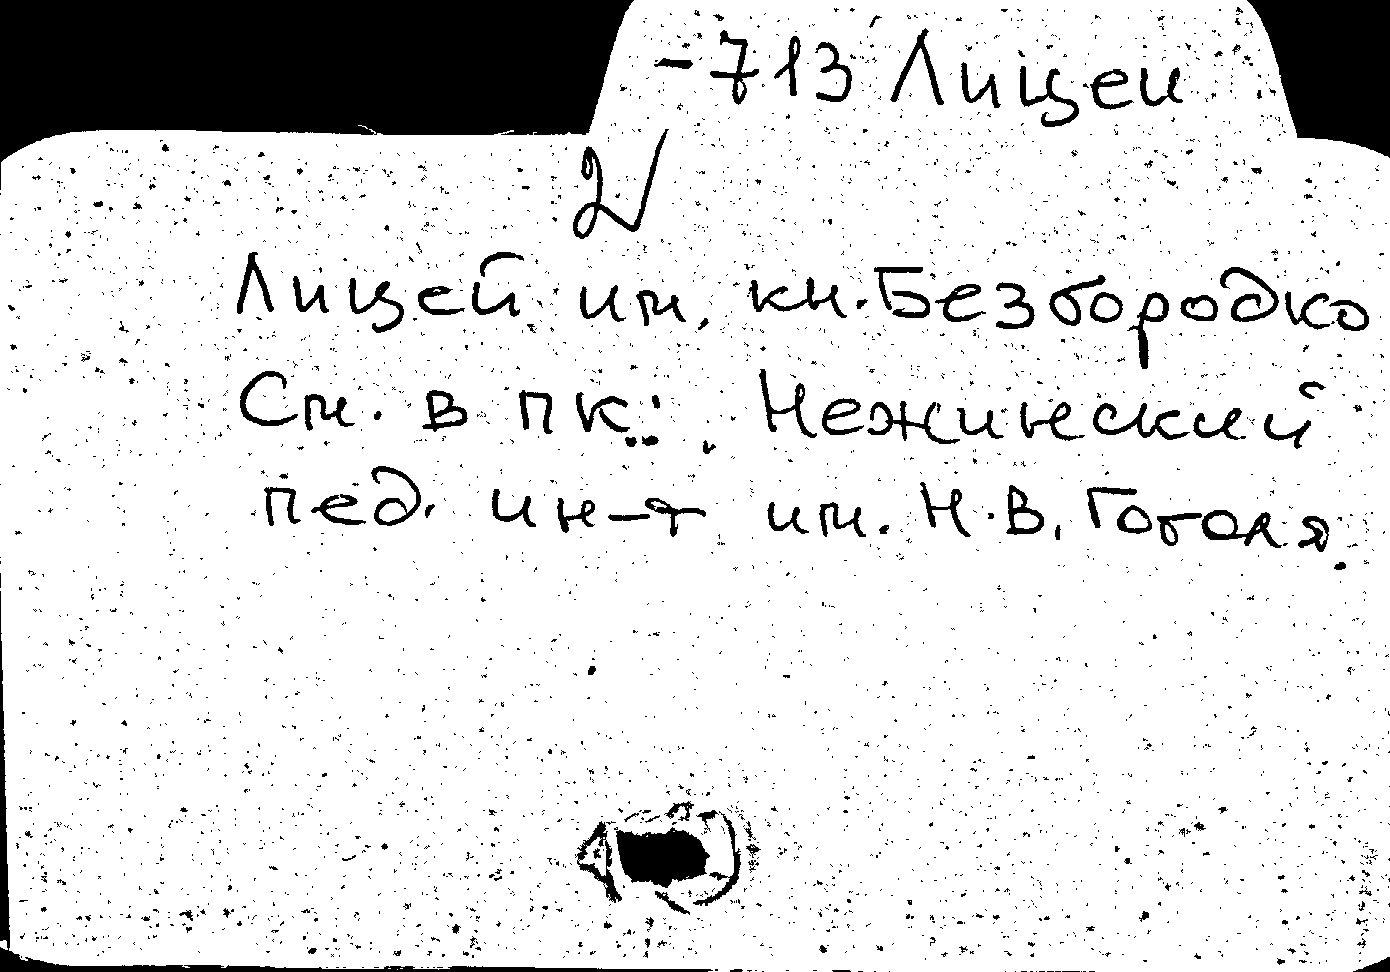 -713 Лицеи
2✓
Лицей им. кн. Безбородко
См. в пк: Нежинский
пед. ин-т им. Н.В. Гоголя.